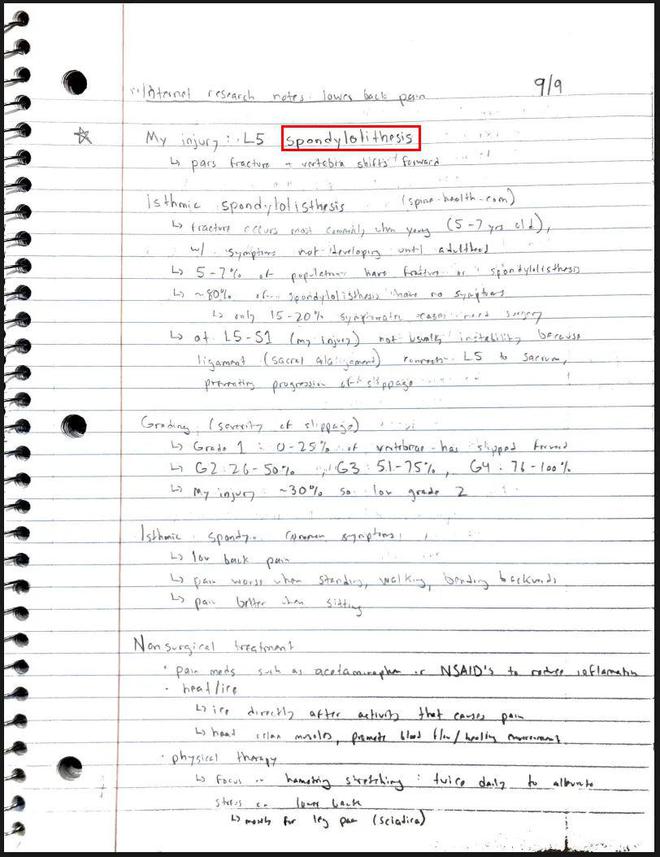 Internet research notes: lower back pain 9/9
☆ My injury: L5 spondylolithesis
↳ pars fracture → vertebra shifts forward
Isthmic spondylolisthesis (spine-health.com)
↳ fracture occurs most commonly when young (5-7 yrs old),
w/ symptoms not developing until adulthood
↳ 5-7% of population have fracture or spondylolisthesis
↳ ~80% of spondylolisthesis have no symptoms
↳ only 15-20% symptomatic cases need surgery
↳ at L5-S1 (my injury) not usually instability because
ligament (sacral ) connects L5 to sacrum,
preventing progression of slippage
Grading (severity of slippage)
↳ Grade 1: 0-25% of vertebrae has slipped forward
↳ G2: 26-50%, G3: 51-75%, G4: 76-100%
↳ My injury ~30% so low grade 2
Isthmic spondy. common symptoms:
↳ low back pain
↳ pain worse when standing, walking, bending backwards
↳ pain better when sitting
Nonsurgical treatment
· pain meds such as acetaminophen or NSAID's to reduce inflamation
· heat/ice
↳ ice directly after activity that causes pain
↳ heat relax muscles, promote blood flow/healing environment
· physical therapy
↳ Focus on hamstring stretching: twice daily to alleviate
stress on lower back
↳ for leg pain (sciatica)